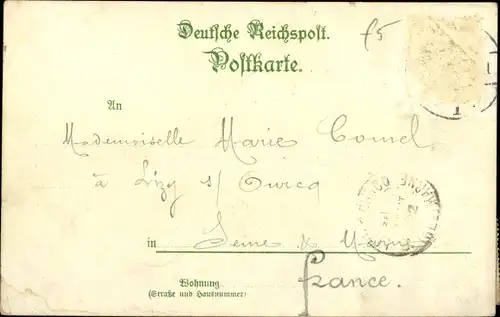 Deutsche Reichspost.
£5
Postkarte.
An
Mademoiselle Marie Comel
à Lizy s/ Ourcq
in Seine & Marne
Wohnung
(Straße und Hausnummer)
france.